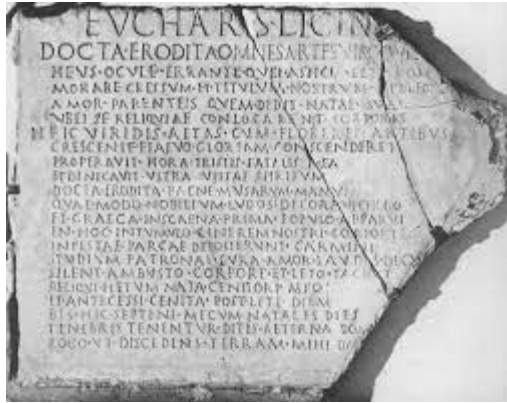 EVCHARIS · LICIN
DOCTA · ERODITA · OMNES · ARTES · VIRGO
HEVS · OCVLO · ERRANTE · QVEI · ASPICIS · LETI · DOM
MORARE · GRESSVM · ET · TITVLVM · NOSTRVM · PERLEGE
AMOR · PARENTEIS · QVEM · DEDIT · NATAE · SVAE
VBEI · SE · RELIQVIAE · CONLOCARENT · CORPORIS
HEIC · VIRIDIS · AETAS · CVM · FLORERET · ARTIBVS
CRESCENTE · ET · AEVO · GLORIAM · CONSCENDERET
PROPERAVIT · HORA · TRISTIS · FATALIS · MEA
ET · DENEGAVIT · VLTRA · VEITAE · SPIRITVM
DOCTA · ERODITA · PAENE · MVSARVM · MANV
QVAE · MODO · NOBILIVM · LVDOS · DECORAVI · CHORO
ET · GRAECA · IN · SCAENA · PRIMA · POPVLO · APPARVI
EN · HOC · IN · TVMVLO · CINEREM · NOSTRI · CORPORIS
INFESTAE · PARCAE · DEPOSIERVNT · CARMINE
STVDIVM · PATRONAE · CVRA · AMOR · LAVDES · DECVS
SILENT · AMBVSTO · CORPORE · ET · LETO · TACENT
RELIQVI · FLETVM · NATA · GENITORI · MEO
ET · ANTECESSI · GENITA · POST · LETI · DIEM
BIS · HIC · SEPTENI · MECVM · NATALES · DIES
TENEBRIS · TENENTVR · DITIS · AETERNA · DO
ROGO · VT · DISCEDENS · TERRAM · MIHI